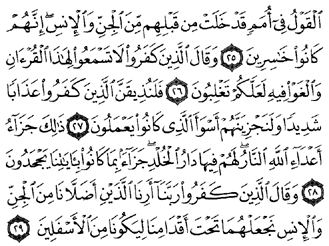 ٱلْقَوْلُ فِىٓ أُمَمٍ قَدْ خَلَتْ مِن قَبْلِهِم مِّنَ ٱلْجِنِّ وَٱلْإِنسِ ۖ إِنَّهُمْ
كَانُوا۟ خَٰسِرِينَ ٢٥ وَقَالَ ٱلَّذِينَ كَفَرُوا۟ لَا تَسْمَعُوا۟ لِهَٰذَا ٱلْقُرْءَانِ
وَٱلْغَوْا۟ فِيهِ لَعَلَّكُمْ تَغْلِبُونَ ٢٦ فَلَنُذِيقَنَّ ٱلَّذِينَ كَفَرُوا۟ عَذَابًا
شَدِيدًا وَلَنَجْزِيَنَّهُمْ أَسْوَأَ ٱلَّذِى كَانُوا۟ يَعْمَلُونَ ٢٧ ذَٰلِكَ جَزَآءُ
أَعْدَآءِ ٱللَّهِ ٱلنَّارُ ۖ لَهُمْ فِيهَا دَارُ ٱلْخُلْدِ ۖ جَزَآءًۢ بِمَا كَانُوا۟ بِـَٔايَٰتِنَا يَجْحَدُونَ
٢٨ وَقَالَ ٱلَّذِينَ كَفَرُوا۟ رَبَّنَآ أَرِنَا ٱلَّذَيْنِ أَضَلَّانَا مِنَ ٱلْجِنِّ
وَٱلْإِنسِ نَجْعَلْهُمَا تَحْتَ أَقْدَامِنَا لِيَكُونَا مِنَ ٱلْأَسْفَلِينَ ٢٩